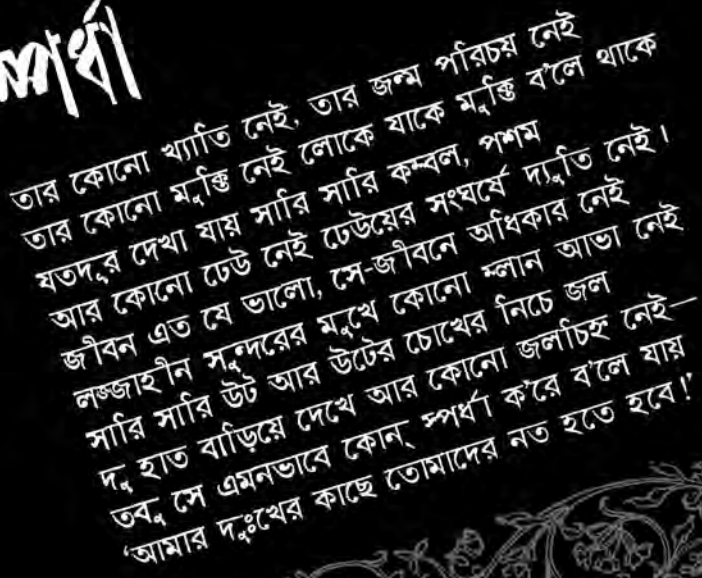 স্পর্ধা
তার কোনো খ্যাতি নেই, তার জন্ম পরিচয় নেই
তার কোনো মুক্তি নেই লোকে যাকে মুক্তি ব'লে থাকে
যতদূর দেখা যায় সারি সারি কম্বল, পশম
আর কোনো ঢেউ নেই ঢেউয়ের সংঘর্ষে দ্যুতি নেই।
জীবন এত যে ভালো, সে-জীবনে অধিকার নেই
লজ্জাহীন সুন্দরের মুখে কোনো ম্লান আভা নেই
সারি সারি উট আর উটের চোখের নিচে জল
দু হাত বাড়িয়ে দেখে আর কোনো জলচিহ্ন নেই—
তবু সে এমনভাবে কোন্ স্পর্ধা ক'রে ব'লে যায়
'আমার দুঃখের কাছে তোমাদের নত হতে হবে!'